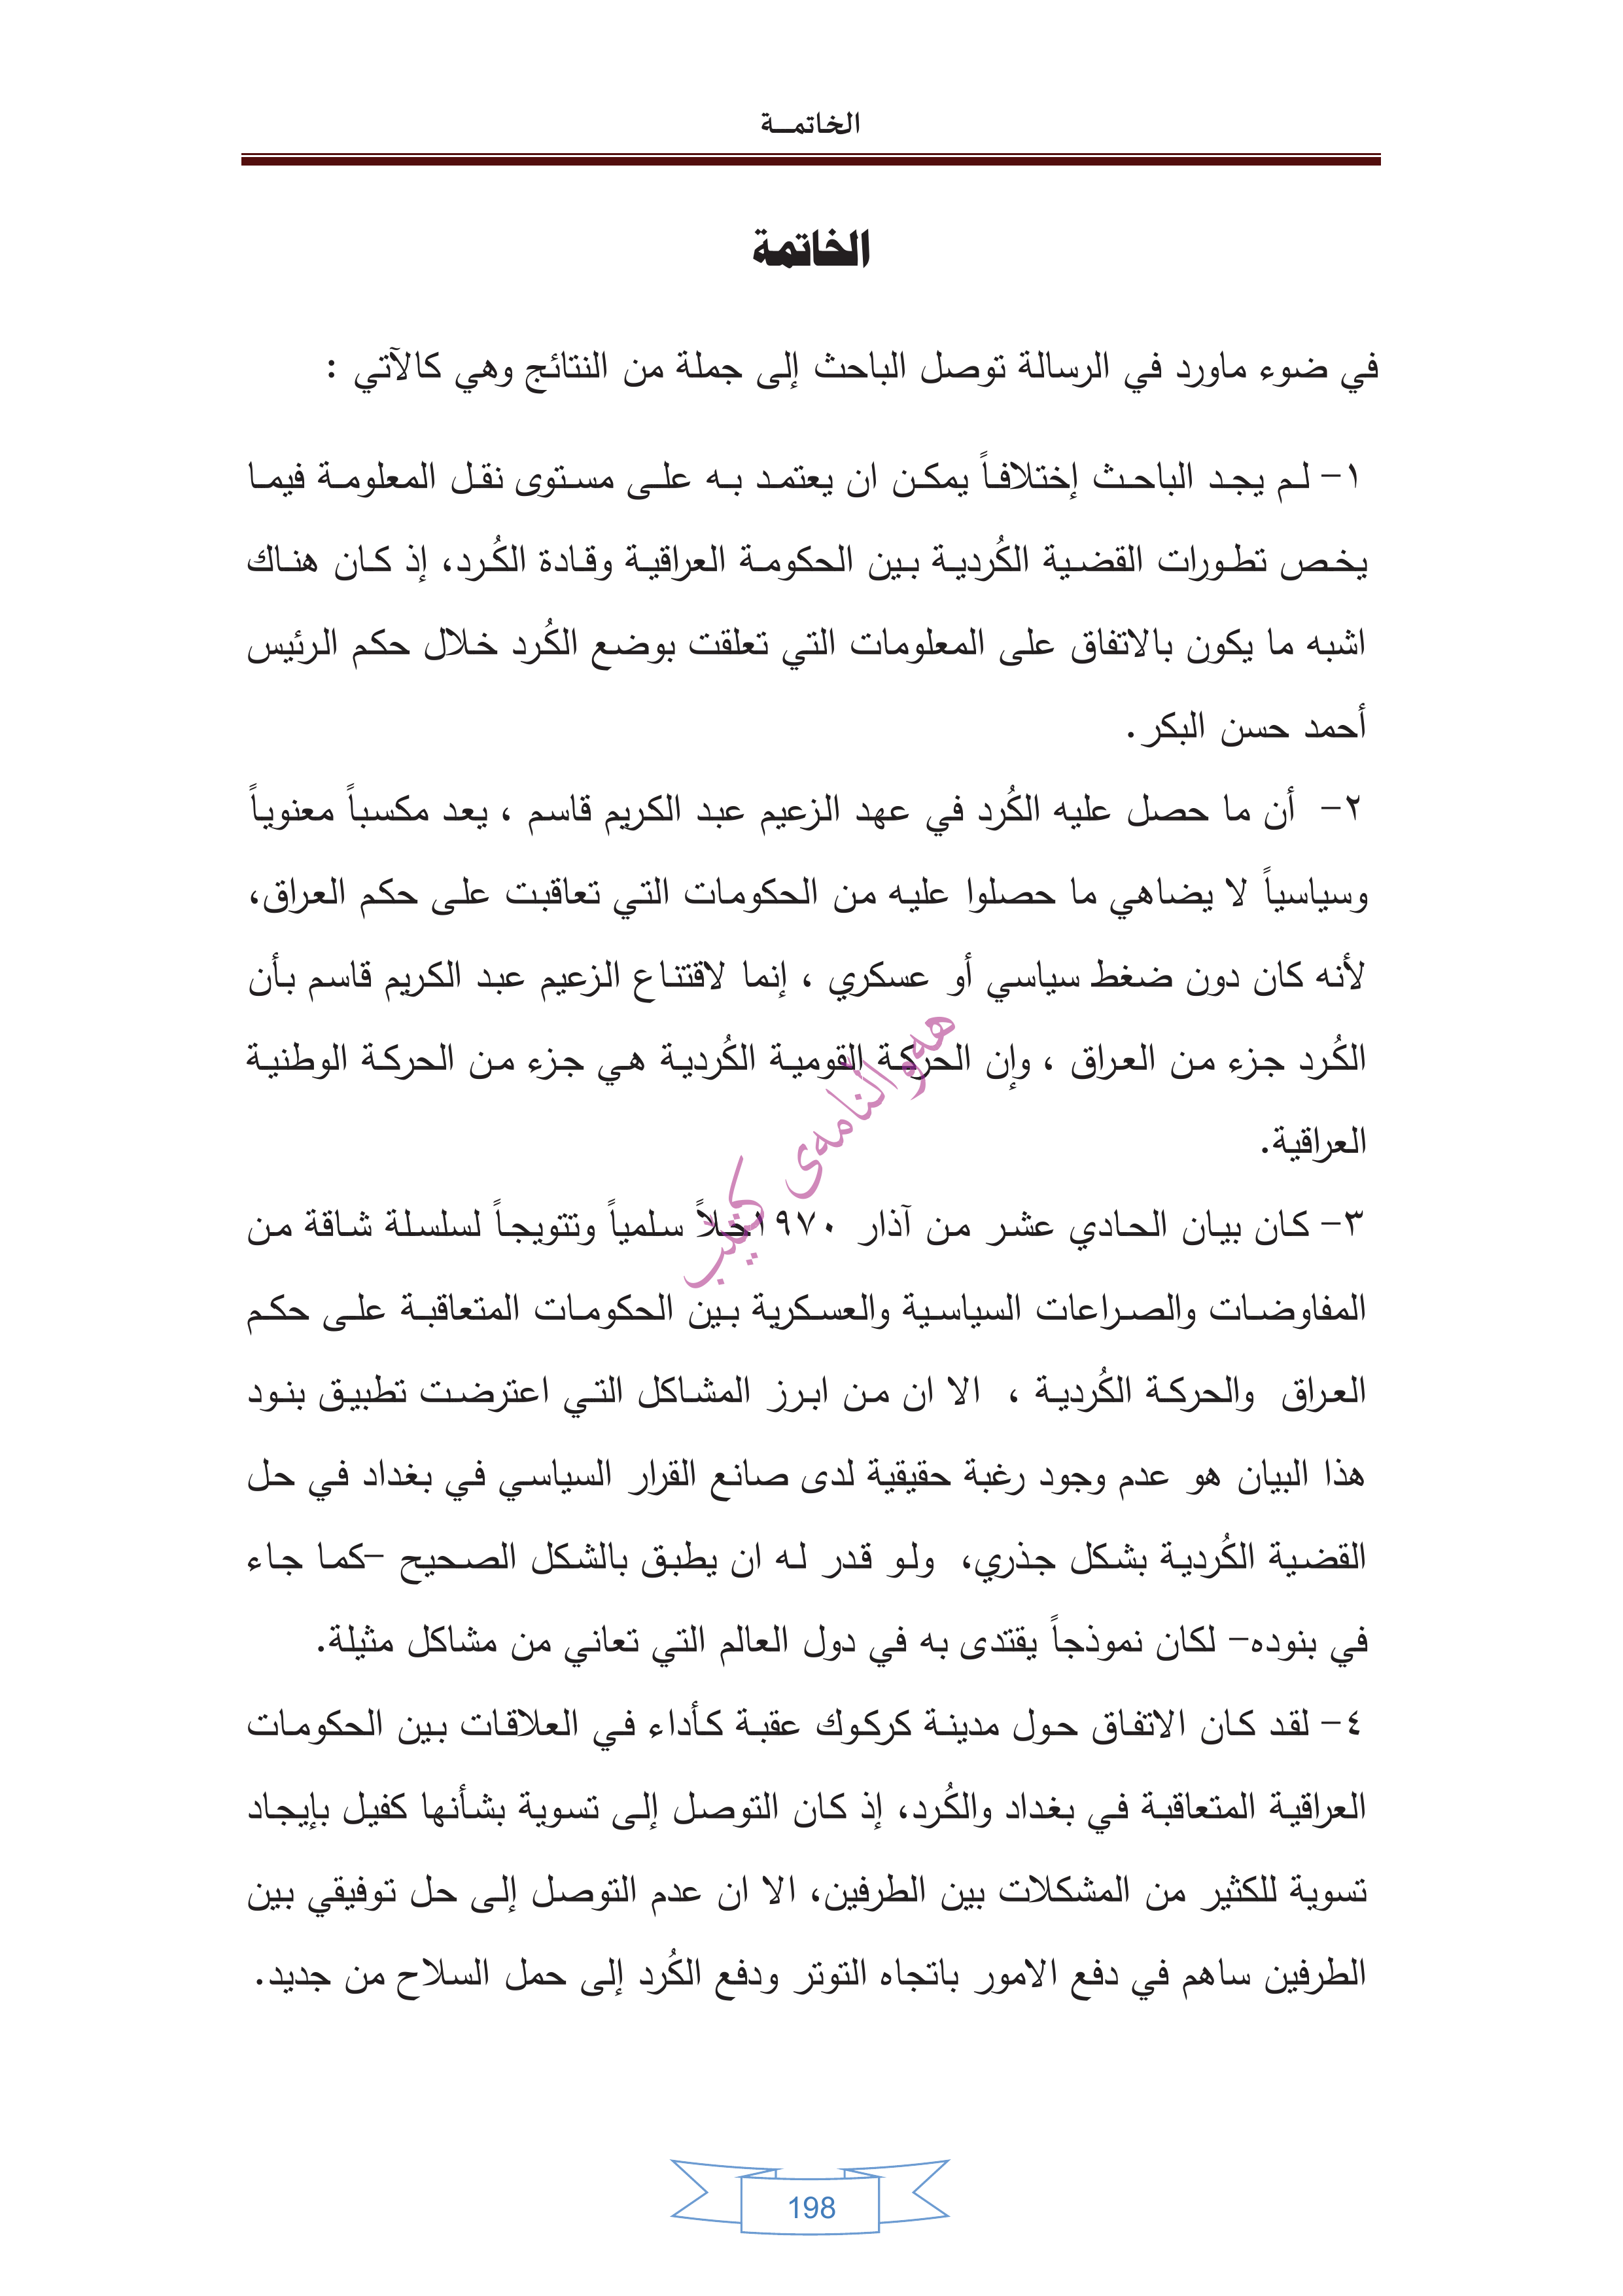 الخاتمـــة
الخاتمة
في ضوء ماورد في الرسالة توصل الباحث إلى جملة من النتائج وهي كالآتي :
١- لم يجد الباحث إختلافاً يمكن ان يعتمد به على مستوى نقل المعلومة فيما
يخص تطورات القضية الكُردية بين الحكومة العراقية وقادة الكُرد، إذ كان هناك
اشبه ما يكون بالاتفاق على المعلومات التي تعلقت بوضع الكُرد خلال حكم الرئيس
أحمد حسن البكر.
٢- أن ما حصل عليه الكُرد في عهد الزعيم عبد الكريم قاسم ، يعد مكسباً معنوياً
وسياسياً لا يضاهي ما حصلوا عليه من الحكومات التي تعاقبت على حكم العراق،
لأنه كان دون ضغط سياسي أو عسكري ، إنما لاقتتناع الزعيم عبد الكريم قاسم بأن
الكُرد جزء من العراق ، وإن الحركة القومية الكُردية هي جزء من الحركة الوطنية
العراقية.
٣- كان بيان الحادي عشر من آذار ١٩٧٠حلاً سلمياً وتتويجاً لسلسلة شاقة من
المفاوضات والصراعات السياسية والعسكرية بين الحكومات المتعاقبة على حكم
العراق والحركة الكُردية ، الا ان من ابرز المشاكل التي اعترضت تطبيق بنود
هذا البيان هو عدم وجود رغبة حقيقية لدى صانع القرار السياسي في بغداد في حل
القضية الكُردية بشكل جذري، ولو قدر له ان يطبق بالشكل الصحيح -كما جاء
في بنوده- لكان نموذجاً يقتدى به في دول العالم التي تعاني من مشاكل مثيلة.
٤- لقد كان الاتفاق حول مدينة كركوك عقبة كأداء في العلاقات بين الحكومات
العراقية المتعاقبة في بغداد والكُرد، إذ كان التوصل إلى تسوية بشأنها كفيل بإيجاد
تسوية للكثير من المشكلات بين الطرفين، الا ان عدم التوصل إلى حل توفيقي بين
الطرفين ساهم في دفع الامور باتجاه التوتر ودفع الكُرد إلى حمل السلاح من جديد.
هەواڵنامەی کتێب
198